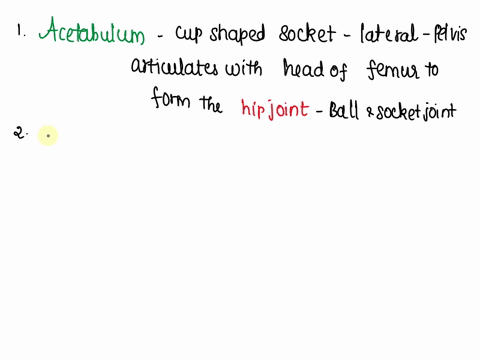 1. Acetabulum - cup shaped socket - lateral - Pelvis
articulates with head of femur to
form the hip joint - Ball & socket joint
2.